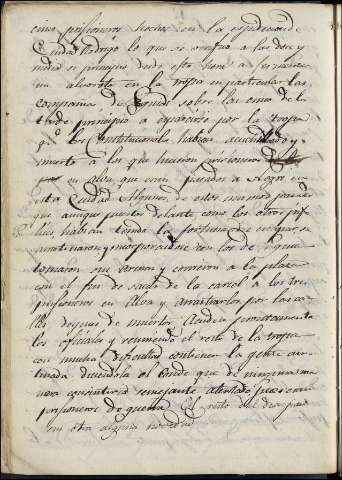 cinco prisioneros hechos en la espedicion de
Ciudad Rodrigo lo que se verifico a las doce y
media se principio desde esta hora a
un alvoroto en la tropa en particular las
companias de sobre las cinco de la
tarde principio a esparcirse por la tropa
q.e los Constitucionales habian
muerto a los que hicieron prisioneros
en Alva que eran pasados a
esta Ciudad Algunos de estos
que aunque puestos delante como los otros
habian tenido la fortuna de se
amotinaron y incorporandose con los de
tomaron sus y corrieron a la plaza
con el fin de sacar de la carcel a los tres
prisioneros en Alva y arrastrarlos por las ca-
lles despues de muertos. Acudieron prontamente
los oficiales y reuniendo el resto de la tropa
con mucha dificultad contener la gente amo-
tinada diciendola el Conde que de ninguna ma
nera consentiria semejante atentado
prisioneros de guerra. El resto del dia paso
sin otra alguna novedad